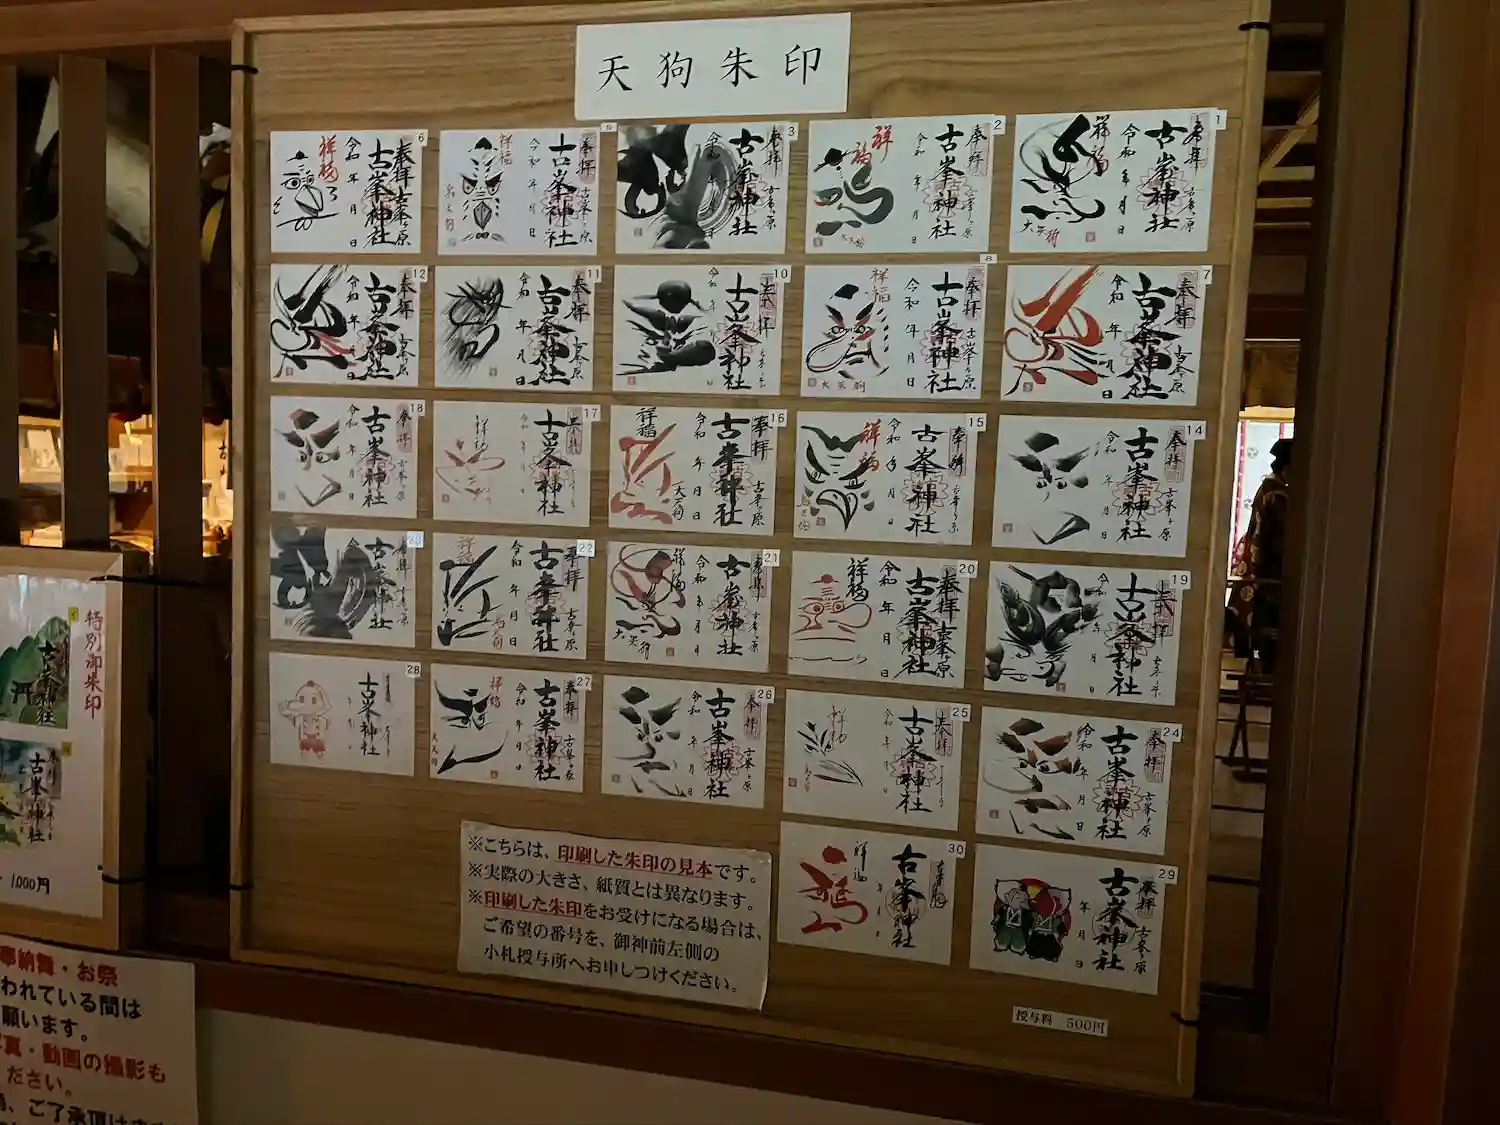 天狗朱印
1
奉拝
古峯ヶ原
古峯神社
令和 年 月 日
祥福
大天狗
2
奉拝
古峯ヶ原
古峯神社
令和 年 月 日
祥福
大天狗
3
奉拝
古峯ヶ原
古峯神社
令和
5
奉拝
古峯ヶ原
古峯神社
令和 年 月 日
祥福
烏天狗
6
奉拝
古峯ヶ原
古峯神社
令和 年 月 日
祥福
7
奉拝
古峯ヶ原
古峯神社
令和 年 月 日
8
奉拝
古峯ヶ原
古峯神社
令和 年 月 日
祥福
大天狗
10
奉拝
古峯ヶ原
古峯神社
令和
日
11
奉拝
古峯ヶ原
古峯神社
令和 年 月 日
12
奉拝
古峯ヶ原
古峯神社
令和 年 月 日
14
奉拝
古峯ヶ原
古峯神社
令和 年 月 日
15
奉拝
古峯ヶ原
古峯神社
令和 年 月 日
祥福
烏天狗
16
奉拝
古峯ヶ原
古峯神社
令和 年 月 日
祥福
大天狗
17
奉拝
古峯神社
令和 年 月 日
祥福
18
奉拝
古峯ヶ原
古峯神社
令和 年 月 日
19
奉拝
古峯ヶ原
古峯神社
令和
月 日
20
奉拝
古峯ヶ原
古峯神社
令和 年 月 日
祥福
21
奉拝
古峯ヶ原
古峯神社
令和 年 月 日
祥福
大天狗
22
奉拝
古峯ヶ原
古峯神社
令和 年 月 日
祥福
烏天狗
23
奉拝
古峯神社
24
奉拝
古峯ヶ原
古峯神社
令和 年 月 日
25
奉拝
古峯神社
令和 年 日
祥福
26
奉拝
古峯ヶ原
古峯神社
令和 年 月 日
27
奉拝
古峯ヶ原
古峯神社
令和 年 月 日
祥福
大天狗
28
古峯神社
29
奉拝
古峯ヶ原
古峯神社
年 月 日
30
奉拝
古峯神社
年 月 日
祥福
※こちらは、印刷した朱印の見本です。
※実際の大きさ、紙質とは異なります。
※印刷した朱印をお受けになる場合は、
ご希望の番号を、御神前左側の
小札授与所へお申しつけください。
授与料 500円
特別御朱印
古峯神社
古峯神社
1,000円
奉納舞・お祭
われている間は
願います。
写真・動画の撮影も
ださい。
、ご了承頂けます